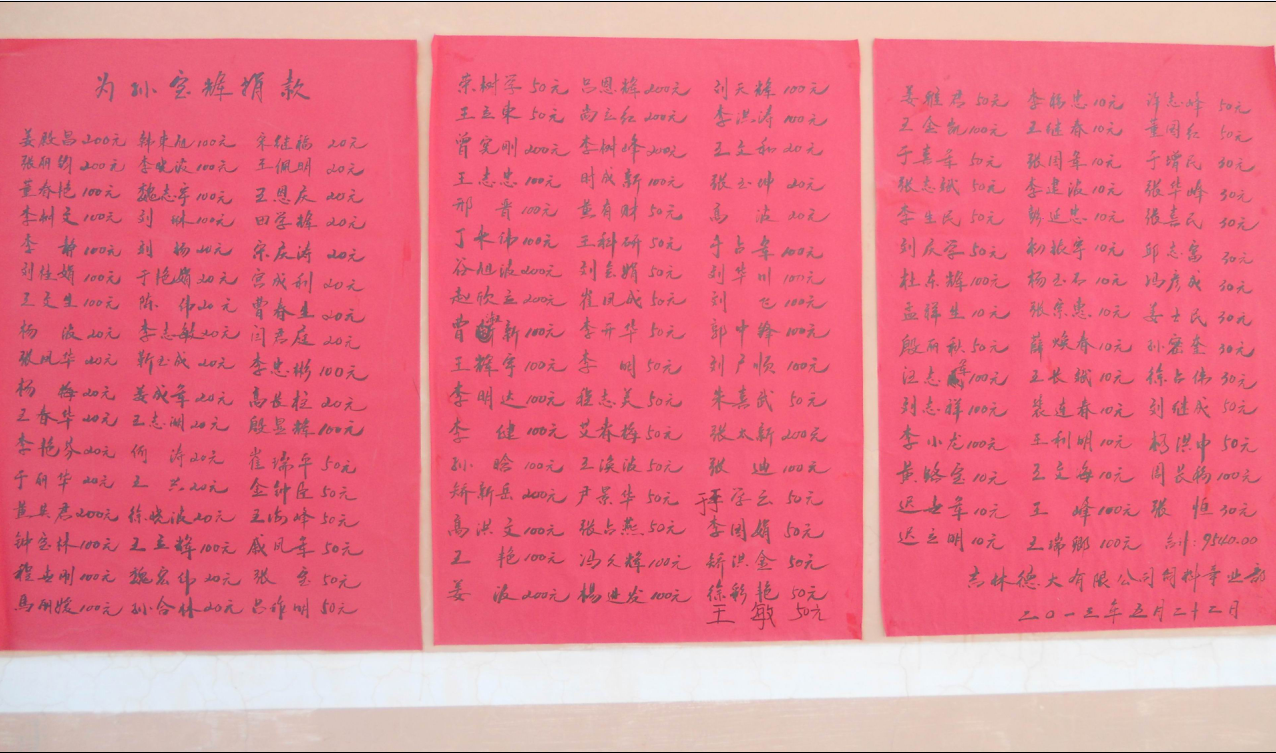 为孙宝辉捐款
姜殿昌200元 韩东旭100元 宋继福 20元
张丽娟200元 李晓波100元 王佩明 20元
董春艳100元 魏志宇100元 王恩庆 20元
李树文100元 刘 琳100元 田学辉 20元
李 静100元 刘 杨20元 宋庆涛 20元
100元 于艳娟20元 宫成利 20元
王文生100元 陈 伟20元 曹春生 20元
杨 波20元 李志敏20元 闫君庭 20元
张凤华20元 靳玉成20元 李忠彬 100元
杨 梅20元 姜成军20元 高长柱 20元
王春华20元 王志湖20元 殷显辉 100元
李艳芬20元 何 涛20元 崔瑞平 50元
于丽华20元 王 兴20元 金钟臣 50元
200元 徐晓波20元 王海峰 50元
钟宝林100元 王立辉100元 戚凤军 50元
程世刚100元 魏宏伟20元 张 宝 50元
马丽媛100元 孙合林20元 吕作明 50元
荣树军 50元 吕恩辉200元 刘天辉 100元
王立东 50元 尚云红 200元 李洪涛 100元
曾宪刚 200元 李树峰200元 王立和 20元
王志忠 100元 时成新100元 张玉坤 20元
邢 晋 100元 黄有财 50元 高 波 20元
丁永伟100元 王科研 50元 于占军 100元
谷旭波200元 50元 刘华川 100元
赵欣立 200元 崔凤成 50元 刘 飞 100元
曹 新100元 李开华 50元 郭中锋 100元
王辉宇 100元 李 明 50元 刘广顺 100元
李明达 100元 程志美 50元 朱嘉武 50元
李 健 100元 艾春梅 50元 张太新 200元
孙 晗 100元 王滨波 50元 张 迪 100元
矫新岳 200元 尹景华 50元 于学云 50元
高洪文 100元 张占燕 50元 李国娟 50元
王 艳 100元 冯久辉 100元 矫洪金 50元
姜 波200元 杨进发 100元 徐彩艳 50元
王 敏 50元
姜雅君 50元 李福忠 10元 许志峰 50元
王金凯100元 王继春 10元 董国红 50元
于喜军 50元 张国军 10元 于增民 30元
张志斌 50元 李建波 10元 张华峰 30元
李生民 50元 彭延忠 10元 张喜民 30元
刘庆学 50元 初振宇 10元 邱志富 30元
杜东辉100元 杨玉石 10元 冯彦成 30元
孟祥生 10元 张宗惠 10元 姜士民 30元
殷丽秋50元 薛焕春10元 孙宗奎 30元
汪志军100元 王长斌10元 徐占伟 30元
刘志祥100元 裴连春10元 刘继成 50元
李小龙100元 王利明10元 杨洪申 50元
黄路宝 10元 王文海10元 周长杨100元
迟世军 10元 王 峰100元 张 恒30元
迟立明 10元 王瑞卿100元 合计:9560.00
吉林德大有限公司饲料事业部
二〇一三年五月二十二日